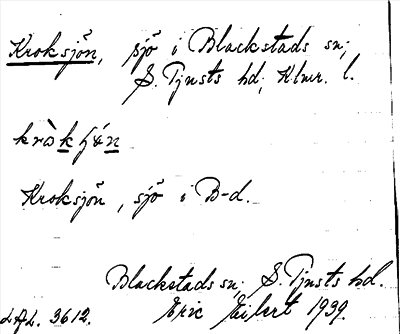 Kroksjön, sjö i Blackstads sn;
S. Tjusts hd; Klmr. l.
Kroksjön, sjö i B-d.
Blackstads sn; S. Tjusts hd.
Eric Eilert 1939.
3612.